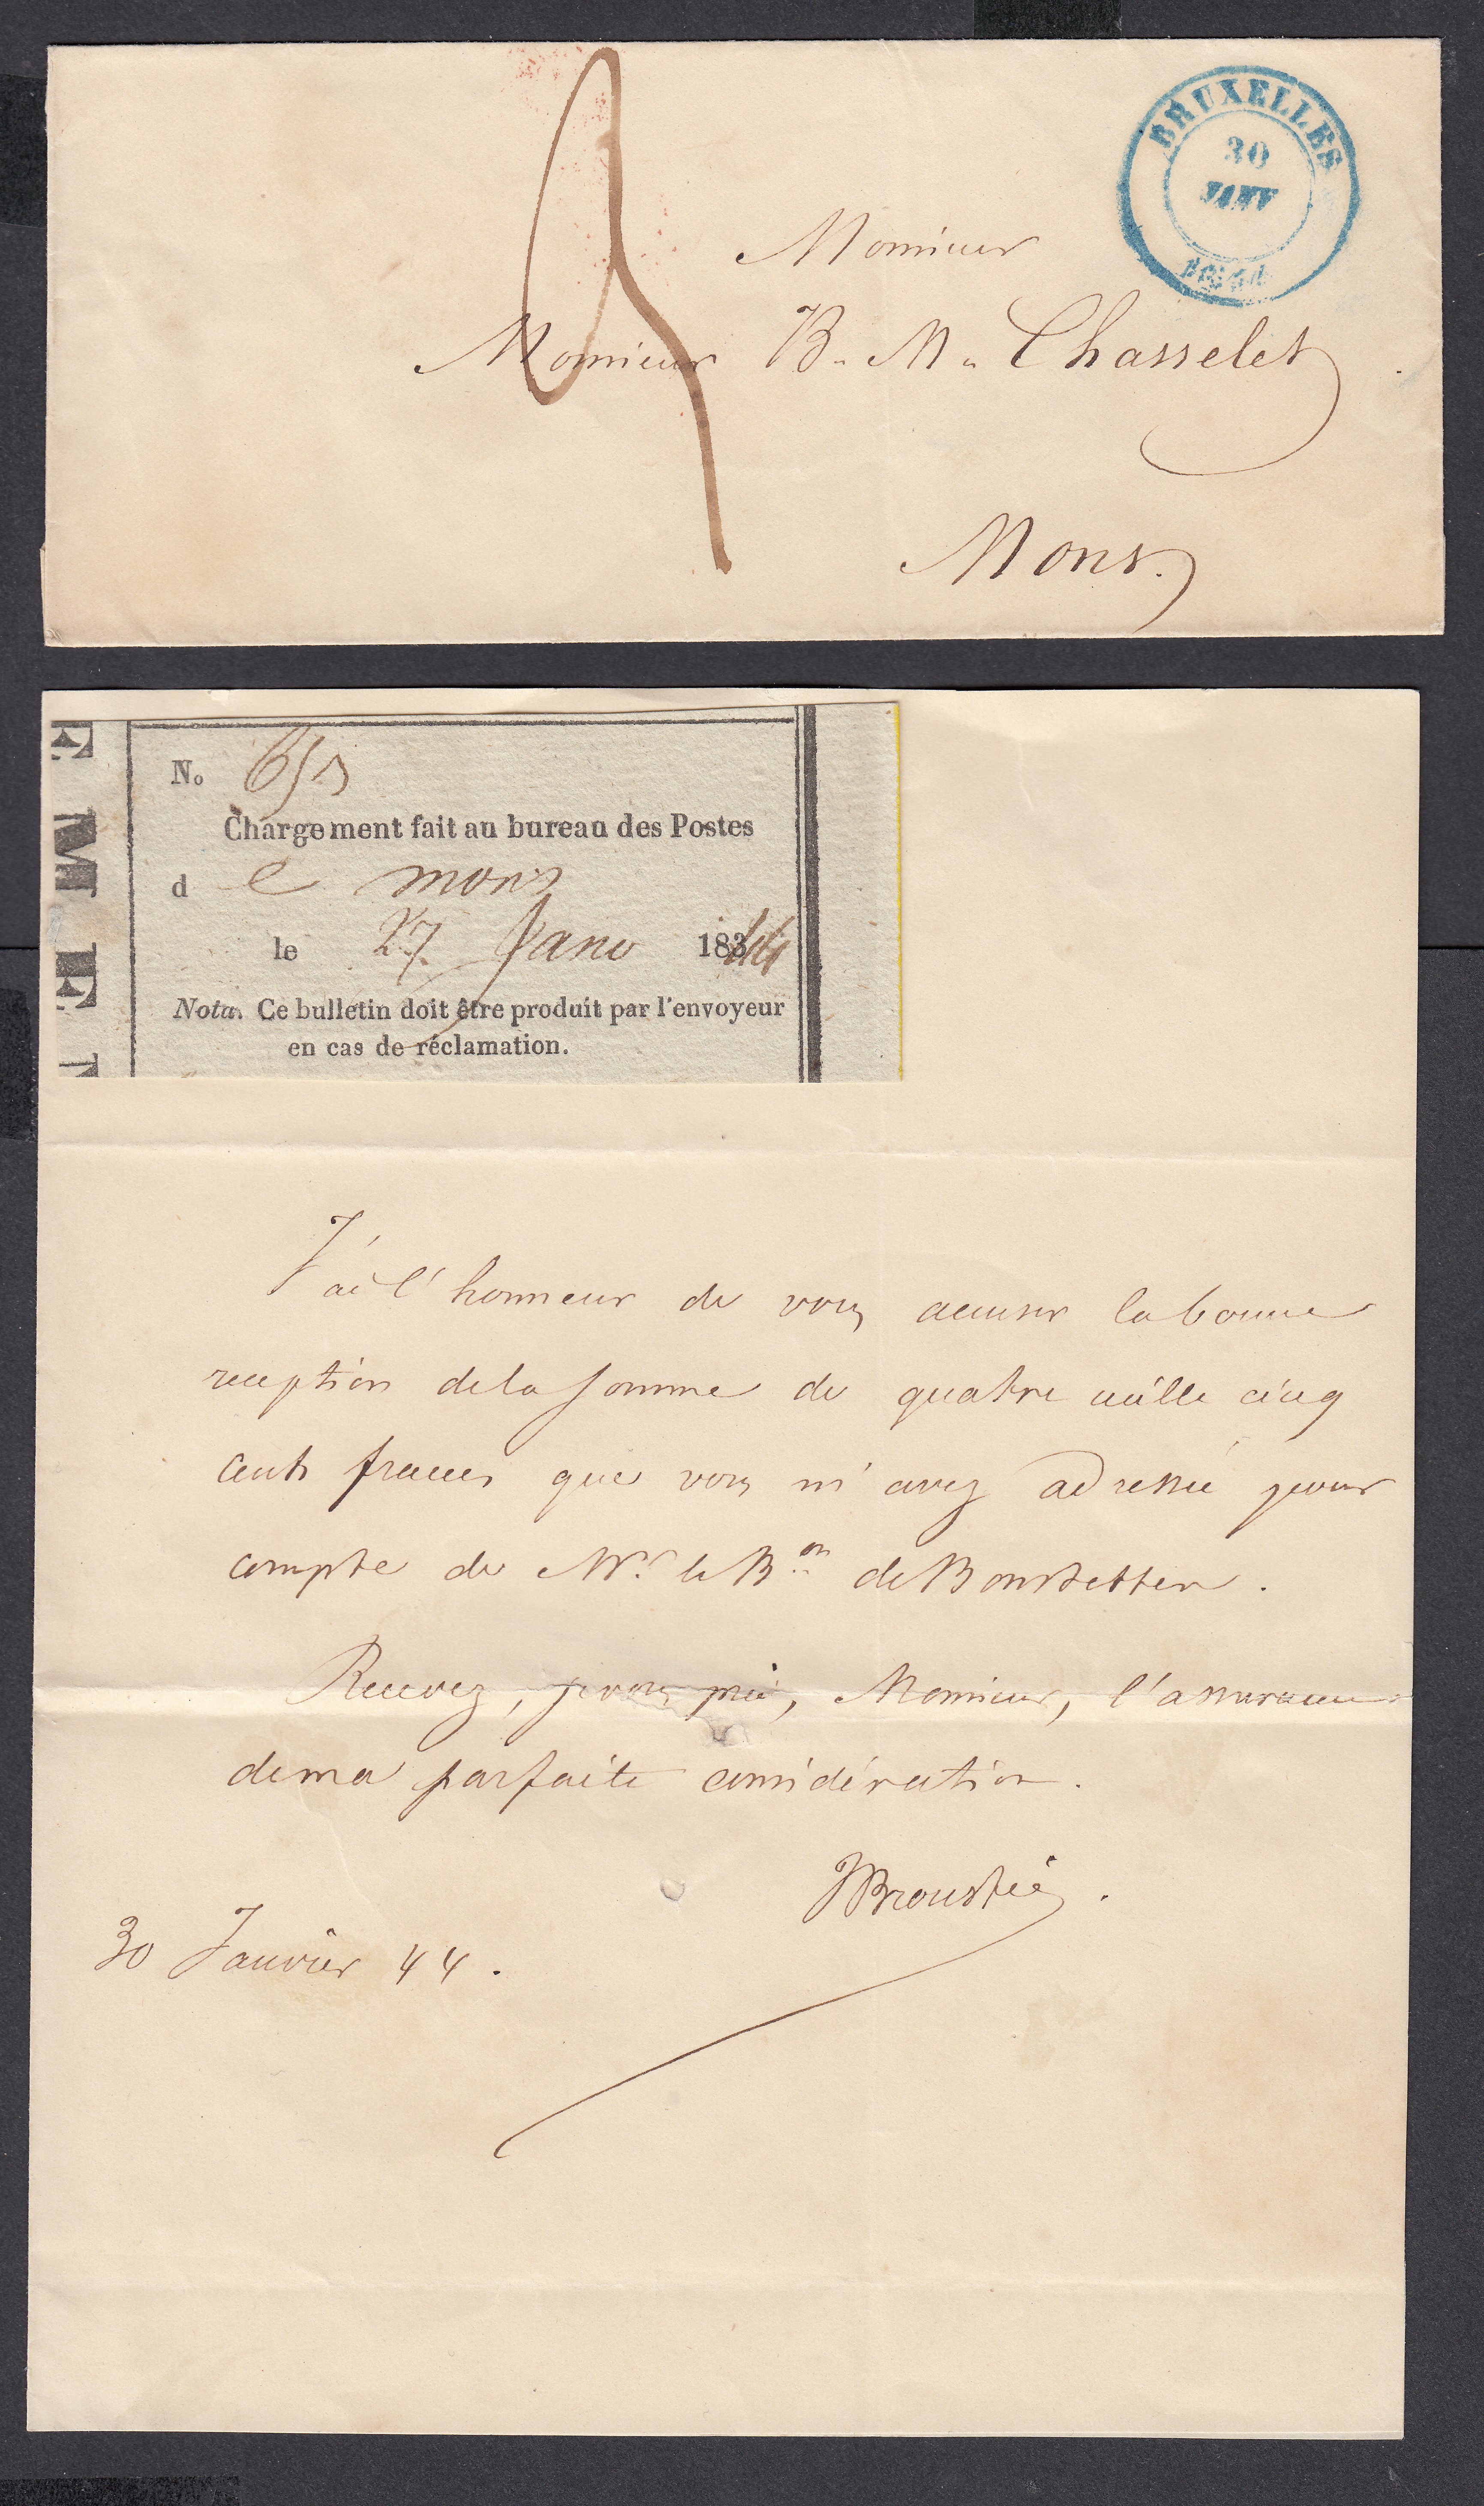 BRUXELLES
30
JANV
Monsieur
Monsieur B. M. Chasselet
Mons.
E M E
No
Chargement fait au bureau des Postes
d e mons
le 27 Janv 18344
Nota. Ce bulletin doit être produit par l'envoyeur
en cas de réclamation.
J'ai l'honneur de vous accuser la bonne
reception de la somme de quatre mille cinq
cents francs que vous m'avez adressée pour
compte de Mr. le Bon de Bonstetten.
Recevez, je vous prie, Monsieur, l'assurance
de ma parfaite considération.
30 Janvier 44.